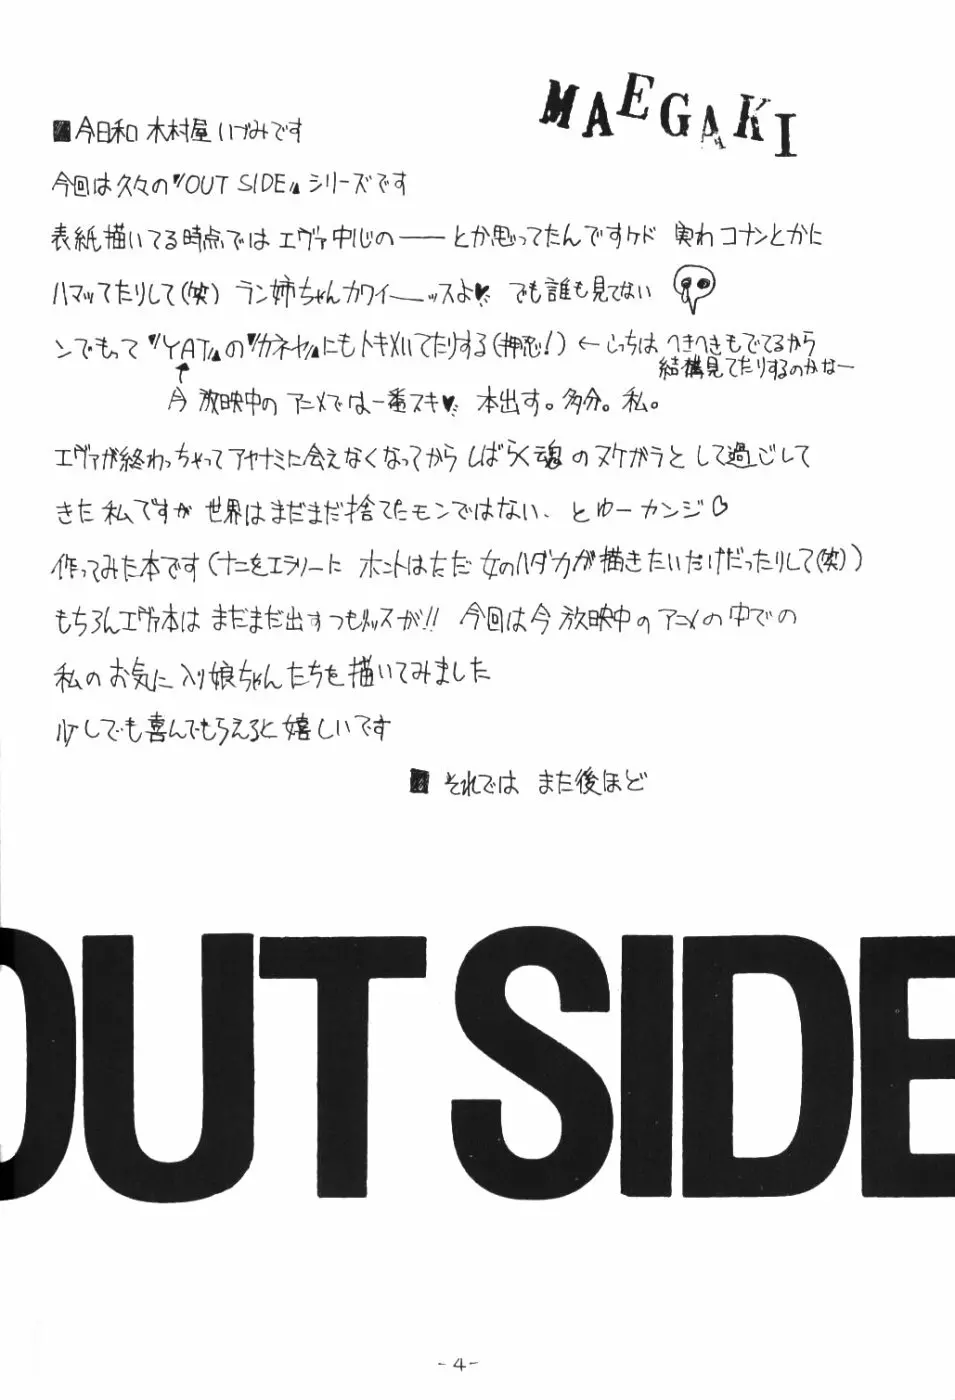 MAEGAKI
■今日和 木村屋いづみです
今回は久々の『OUT SIDE』シリーズです
表紙描いてる時点では エヴァ中心の――とか思ってたんですケド 実わ コナンとかに
ハマッてたりして(笑) ラン姉ちゃんカワイーッスよ♥ でも誰も見てない
ンでもって『YAT』の『カネヤ』にもトキメいてたりする(押忍!) ←こっちは へきへきもでてるから
結構見てたりするのかなー
↑
今 放映中の アニメでは一番スキ♥ 本出す。多分。私。
エヴァが終わっちゃって アヤナミに会えなくなってから しばらく魂の ヌケガラと して過ごして
きた 私ですが 世界はまだまだ捨てたモンではない、とゆー カンジ♡
作ってみた本です(ナニをエラソーに ホントはただ 女のハダカが描きたいだけだったりして(笑))
もちろんエヴァ本は まだまだ出すつもりッスが!! 今回は今 放映中の アニメの中での
私のお気に入り娘ちゃんたちを描いてみました
少しでも喜んでもらえると嬉しいです
■ それでは また後ほど
OUT SIDE
-4-